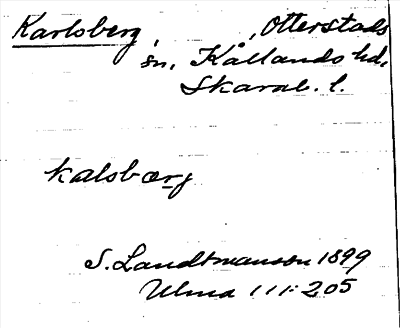 Karlsberg, , Otterstads
sn, Kållands hd,
Skarab. l.
kalsbærj
S. Landtmanson 1899
Ulma 111:205